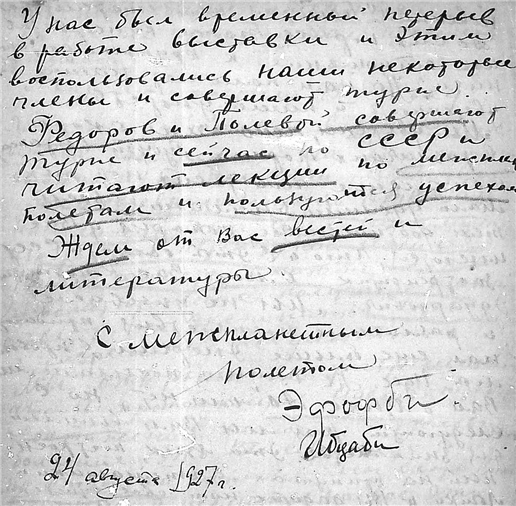 У нас был временный перерыв
в работе выставки и этим
воспользовались наши некоторые
члены и совершают турне...
Федоров и Полевой совершают
турне и сейчас по СССР и
читают лекции по межплан
полетам и пользуются успехом
Ждем от Вас вестей и
литературы.
С межпланетным
полетом
Эфофби.
24 августа 1927 г.